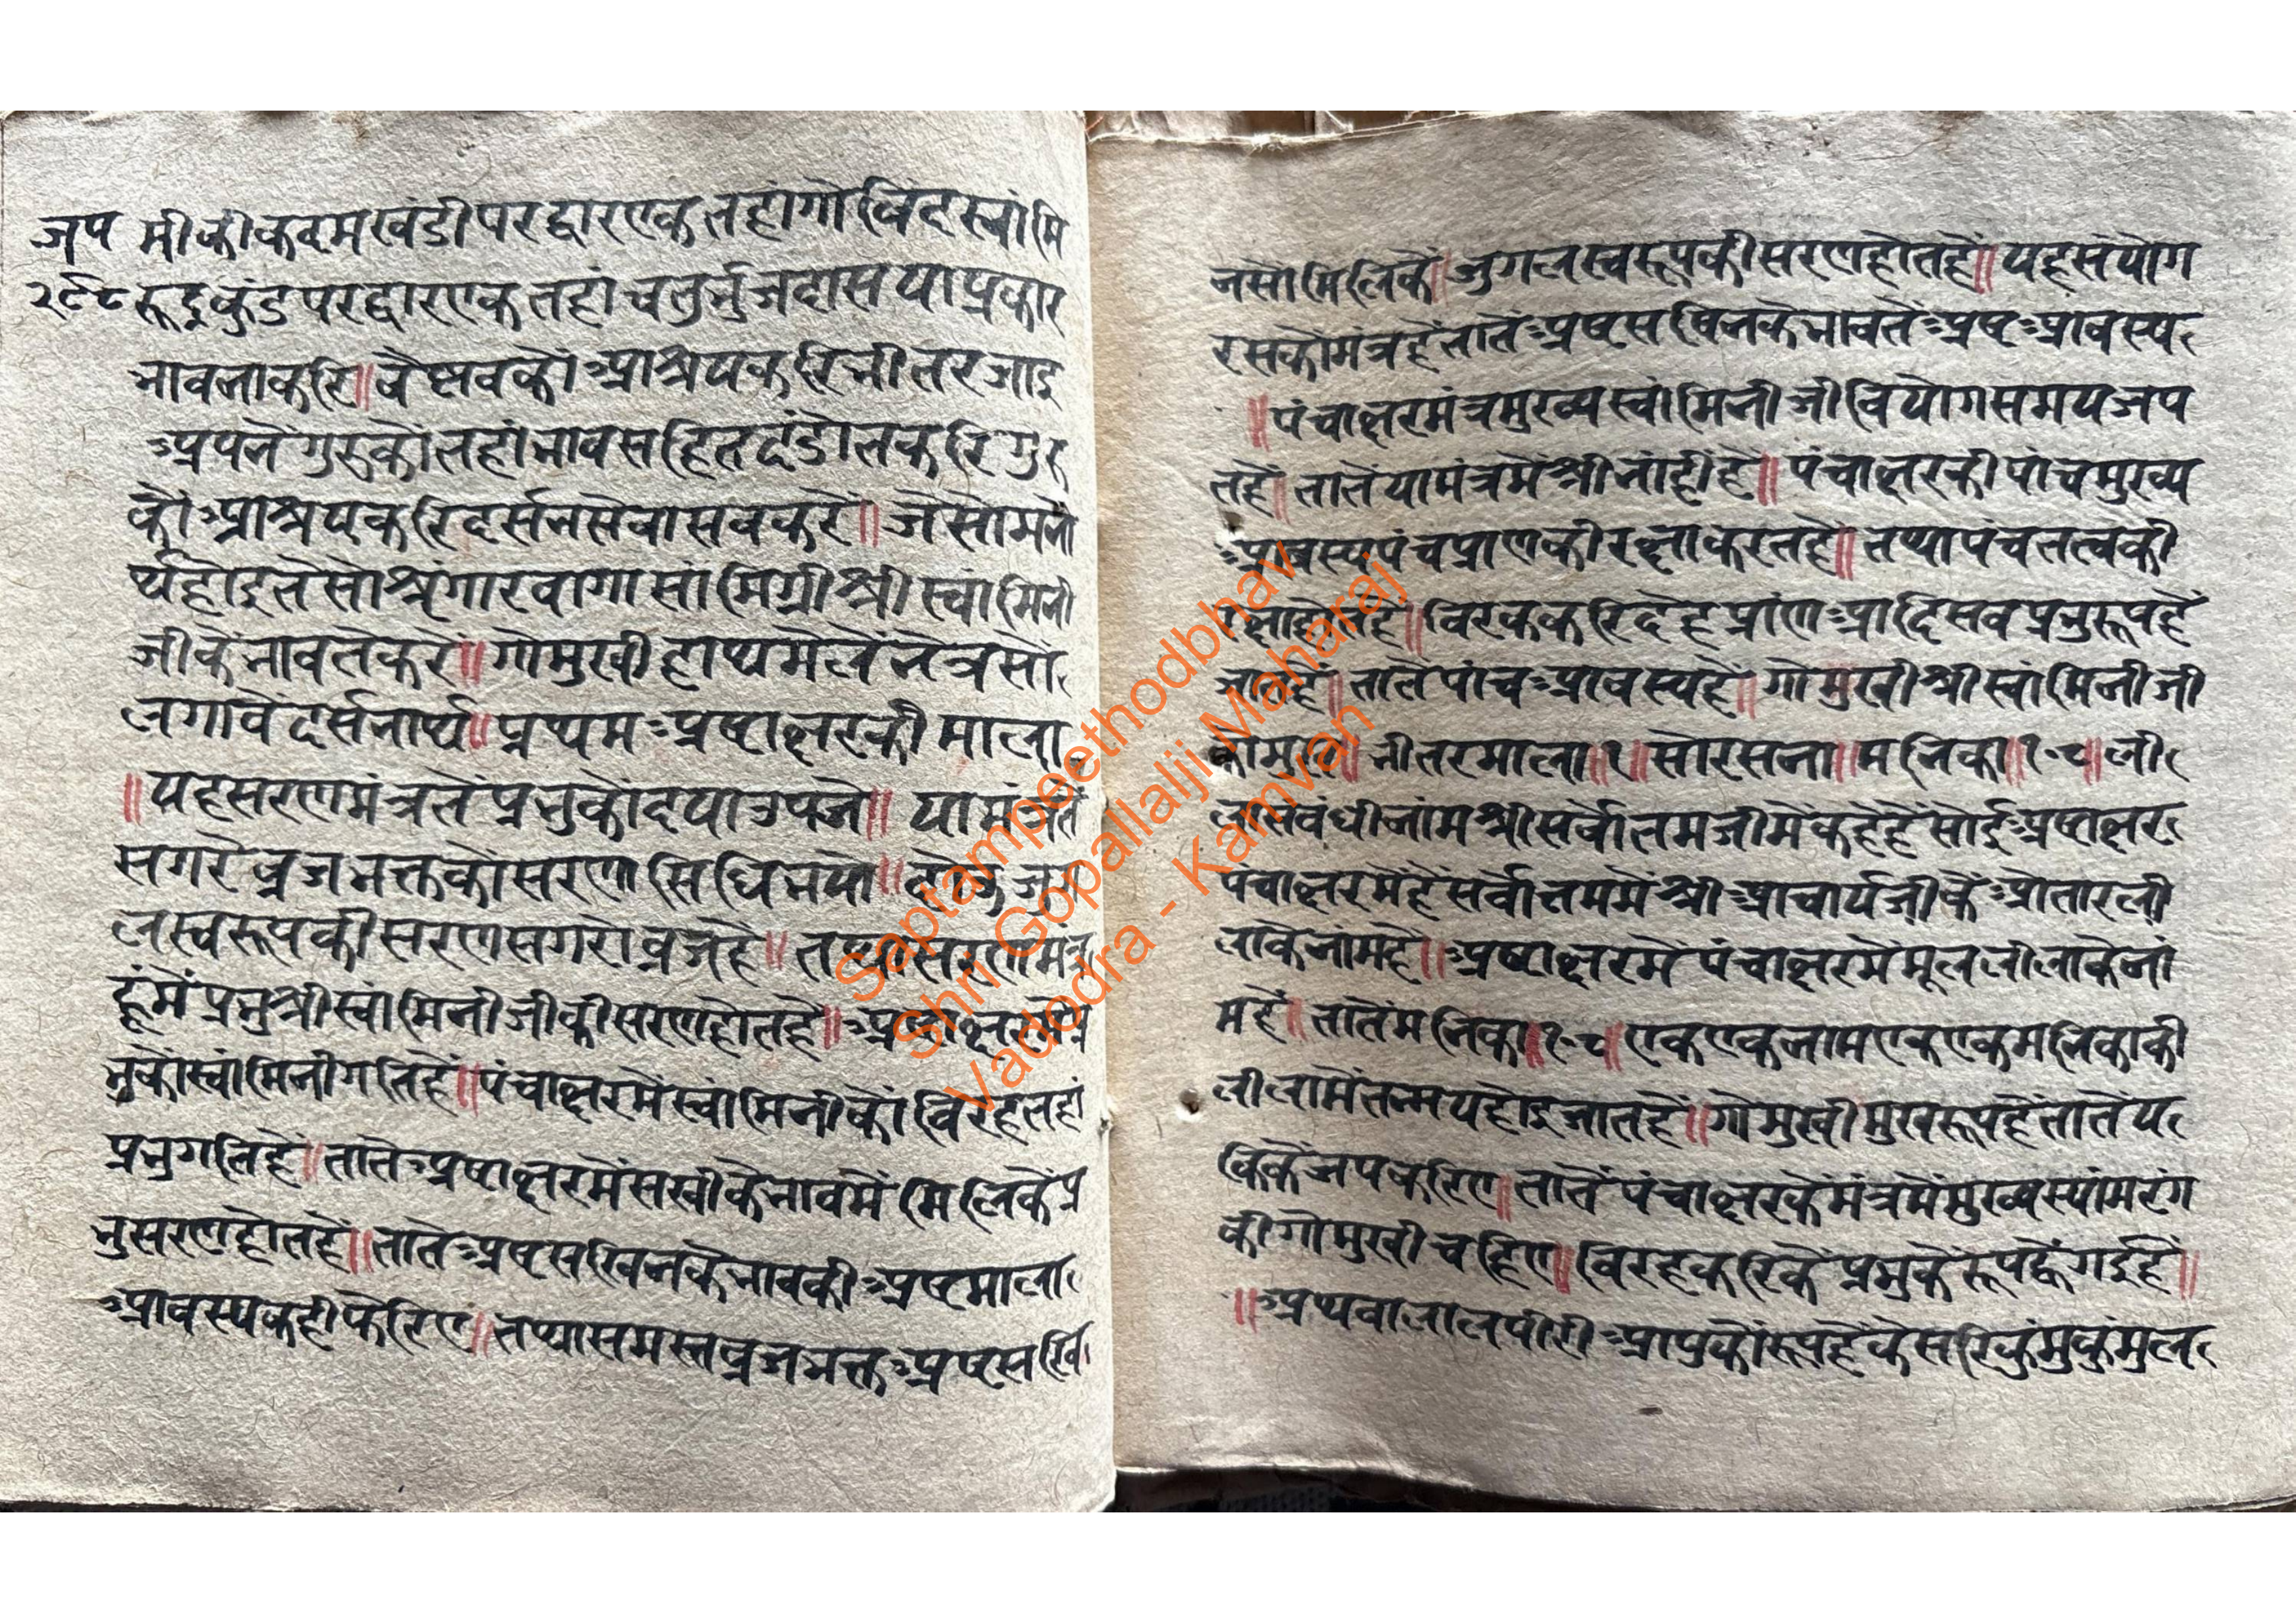 जप
२९८
मीकीकदमखंडीपरद्वारएकतहांगोविंदस्वांमि
रूद्रकुंडपरद्वारएकतहांचतुर्भुजदासयाप्रकार
भावनाकरि॥वैष्णवकोंआश्रयकरिभीतरजाइ
अपनेंगुरुकोंतहांभावसहितदंडोतकरिगुरु
कौआश्रयकरिदर्सनसेवासवकरें॥जैसोमनो
र्थहोइतैसोश्रृंगारवागासांमिग्रीश्रीस्वांमिनी
जीकेंभावतेंकरें॥गोमुखीहाथमेलेंनेत्रसों
लगावेंदर्सनार्थ॥प्रथमअष्टाक्षरकीमाला
॥यहसरणमंत्रतेंप्रभुकोंदयाउपजे॥यामंत्रतें
सगरेव्रजभक्तकोंसरणसिधिभयो॥
लस्वरूपकीसरणसगरोव्रजहै॥
हूंमेंप्रभुश्रीस्वांमिनीजीकीसरणहोतहैं॥
भुकोंस्वांमिनीगतिहै॥पंचाक्षरमेंस्वांमिनीकोंविरहतहां
प्रभुगतिहें॥तातेंअष्टाक्षरमेंसखीकेभावमेंमिलिकेंप्र
भुसरणहोतहें॥तातेंअष्टसखिनकेभावकीअष्टमाला
आवस्यकहीफेरिए॥तथासमस्तव्रजभक्तअष्टसखि
नसोंमिलिकें॥जुगलस्वरूपकीसरणहोतहें॥यहसंयोग
रसकोमंत्रहेंतातेंअष्टसखिनकेभावतेंअष्टआवस्य
॥पंचाक्षरमंत्रमुख्यस्वांमिनीजीवियोगसमयजप
तहें॥तातेंयामंत्रमेंश्रीनांहीहै॥पंचाक्षरकीपांचमुख्य
आवस्यपंचप्राणकीरक्षाकरतहै॥तथापंचतत्वकी
रक्षाहोतहै॥विरककरिदेहप्रांणआदिसवप्रभुरूपहें
जातहें॥तातेंपांचआवस्यहें॥गोमुखीश्रीस्वांमिनीजी
कोमुख॥भीतरमाला॥१॥सोरसना॥मनिका॥१०८॥ली
लासंवंधीनांमश्रीसर्वोत्तमजीमेंकहेहैंसोईअष्टाक्षर
पंचाक्षरमेंहैंसर्वोत्तममेंश्रीआचार्यजीकेंओतारली
लाकेनांमहें॥अष्टाक्षरमेंपंचाक्षरमेंमूललीलाकेनां
महें॥तातेंमनिका॥१०८॥एकएकनामएकएकमनिकाकी
लीलामेंतन्मयहोइजातहें॥गोमुखीमुखरूपहेंतातेंय
किकेंजपकरिए॥तातेंपंचाक्षरकेंमंत्रमेंमुख्यस्यांमरंग
कीगोमुखीचहिए॥विरहकरिकेंप्रभुकेंरूपह्वैगईहें॥
॥अथवालालपीरीआपुकोंरूपहेंकेसरिकुंमुकुंमुल
Saptampeethodbhav
Shri Gopallalji Maharaj
Vadodra - Kamvan